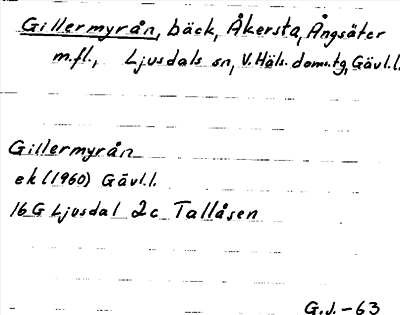 Gillermyrån, bäck, Åkersta, Ångsäter
m.fl., Ljusdals sn, V. Häls. doms.tg, Gävl.l.
Gillermyrån
ek (1960) Gävl.l.
16 G Ljusdal 2c Tallåsen
G.J. - 63